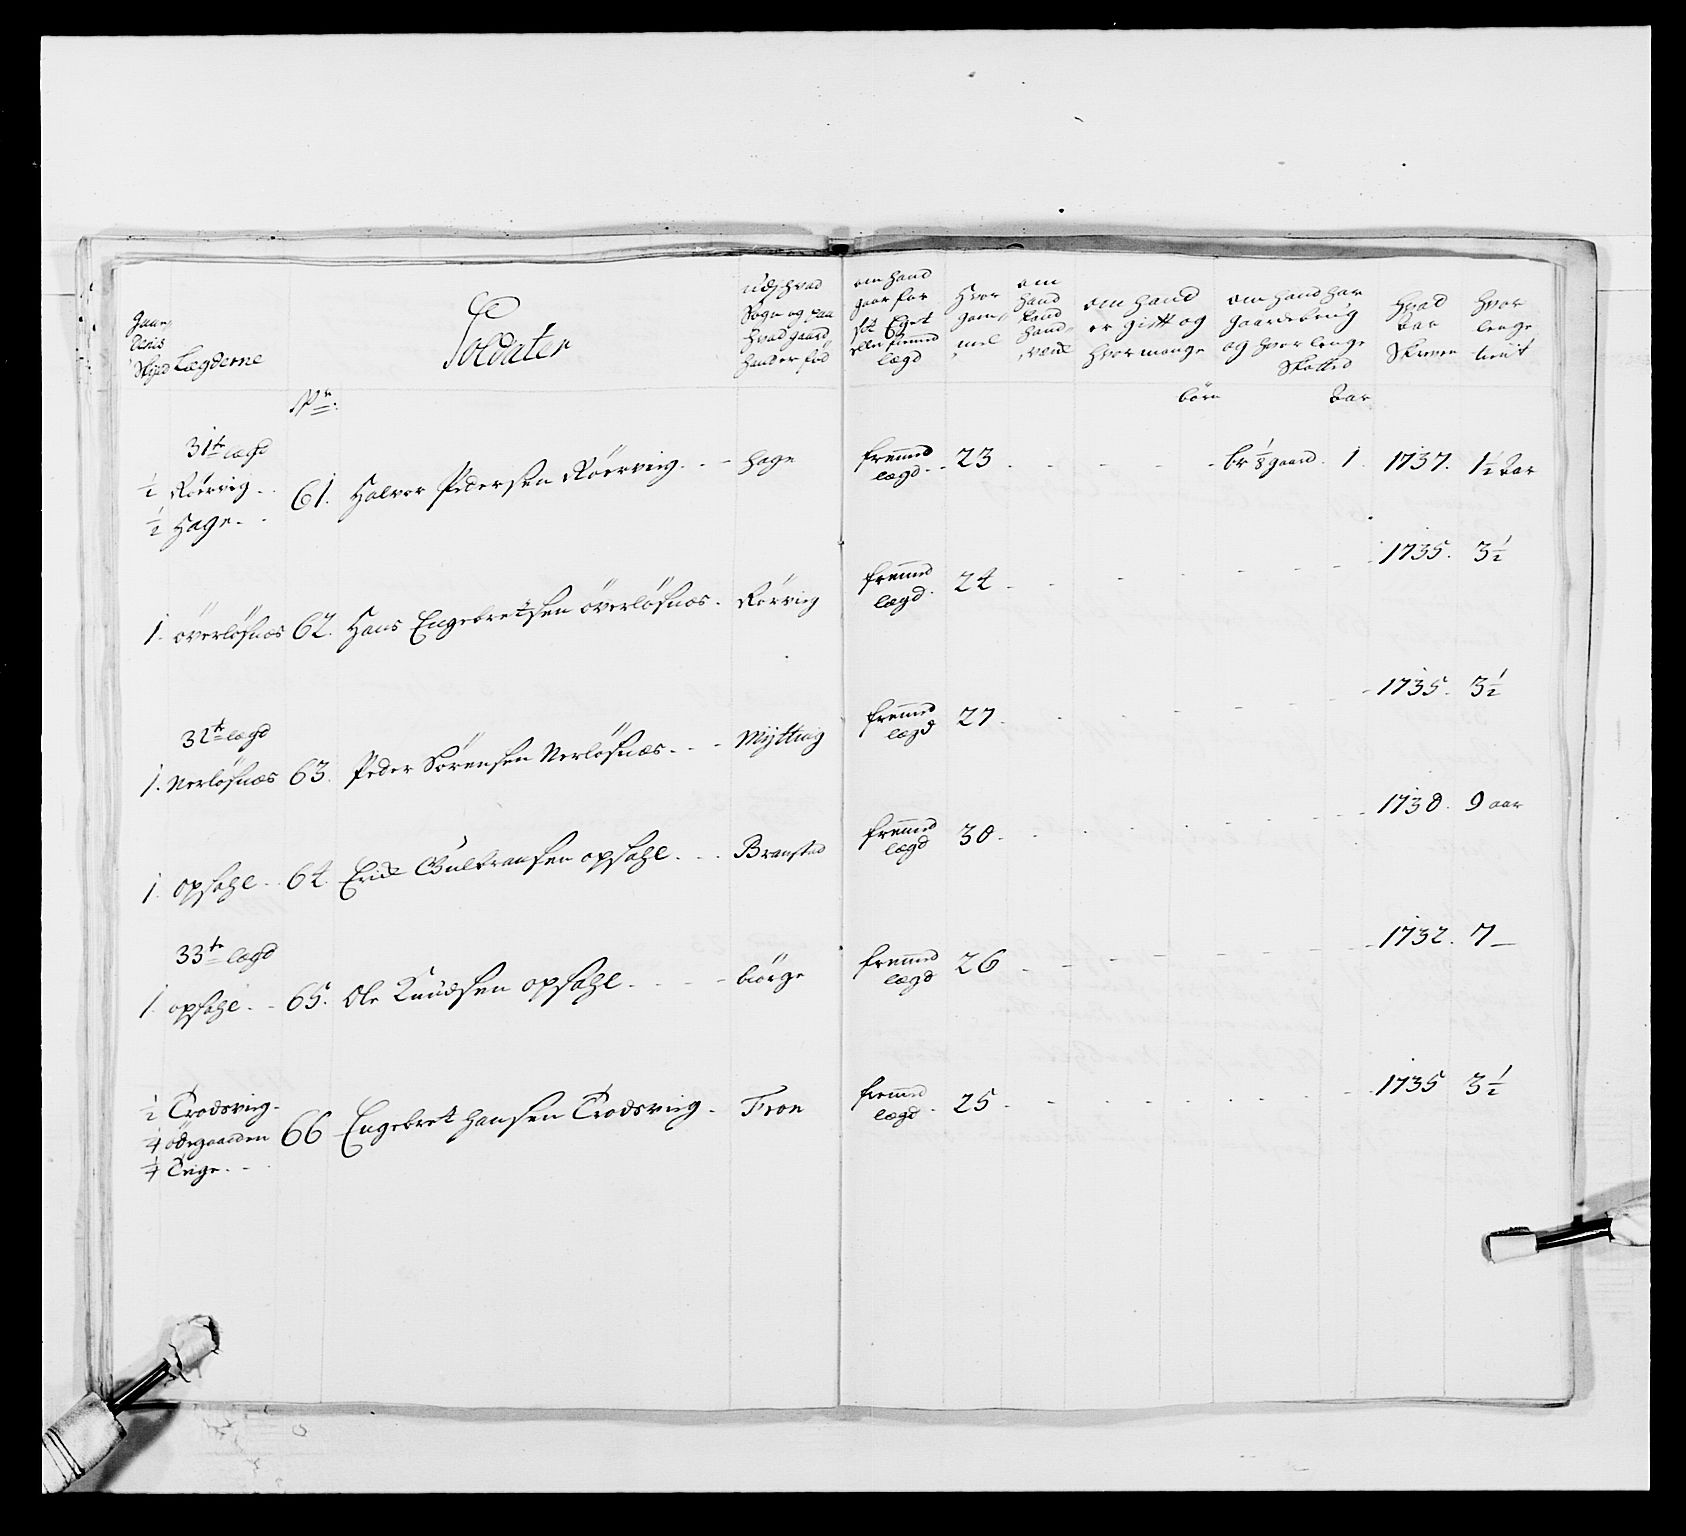 Gaar
denis
Skyld Lægderne
Soldater
udj hvad
Sogn og paa
hvad gaard
hand er fød
om hand
gaar for
sit Eget
eller fremmed
lægd
Hvor
gam
mel
om
hand
kand
hand
værck
om hand
er gift og
hvor mange
om hand har
gaardebrug
og hvor lenge
Hvad
Aar
Skreven
Hvor
lenge
tient
No:
börn
Aar
31te lægd
1/2 Röervig
1/2 Hage
61. Halvor Pedersen Röervig. hage fremmed lægd 23 br 1/8 gaard. 1. 1737. 1 1/2 Aar
1. överlösnæs 62. Hans Engebretsen överlösnæs. Rörvig fremmed lægd. 24 1735. 3 1/2
32te lægd
1. Nerlösnæs 63. Peder Sörensen Nerlösnæs. Mytting fremmed lægd 27 1735. 3 1/2
1. opsahl 64 Erick Gulbransen opsahl. Branstad fremmed lægd 30. 1730. 9 aar
33te lægd
1 opsahl 65. Ole Knudsen opsahl. biörge fremmed lægd 26 1732. 7
1/2 Trodsvig
1/4 ödegaarden
1/4 Teige
66 Engebret Hansen Trodsvig. Fron fremmed lægd. 25 1735 3 1/2